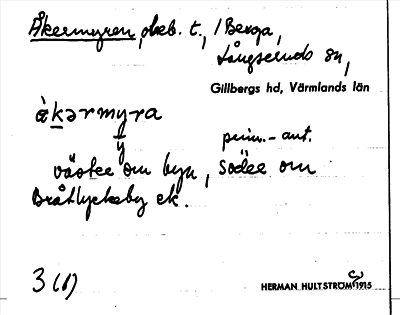 Åkermyren, beb. t., /Berga,
Långseruds sn,
Gillbergs hd, Värmlands län
àkərmyra
y
prim.-ant.
väster om byn, söder om
Bråtlyckeby ek.
3 (1)
HERMAN HULTSTRÖM 1915